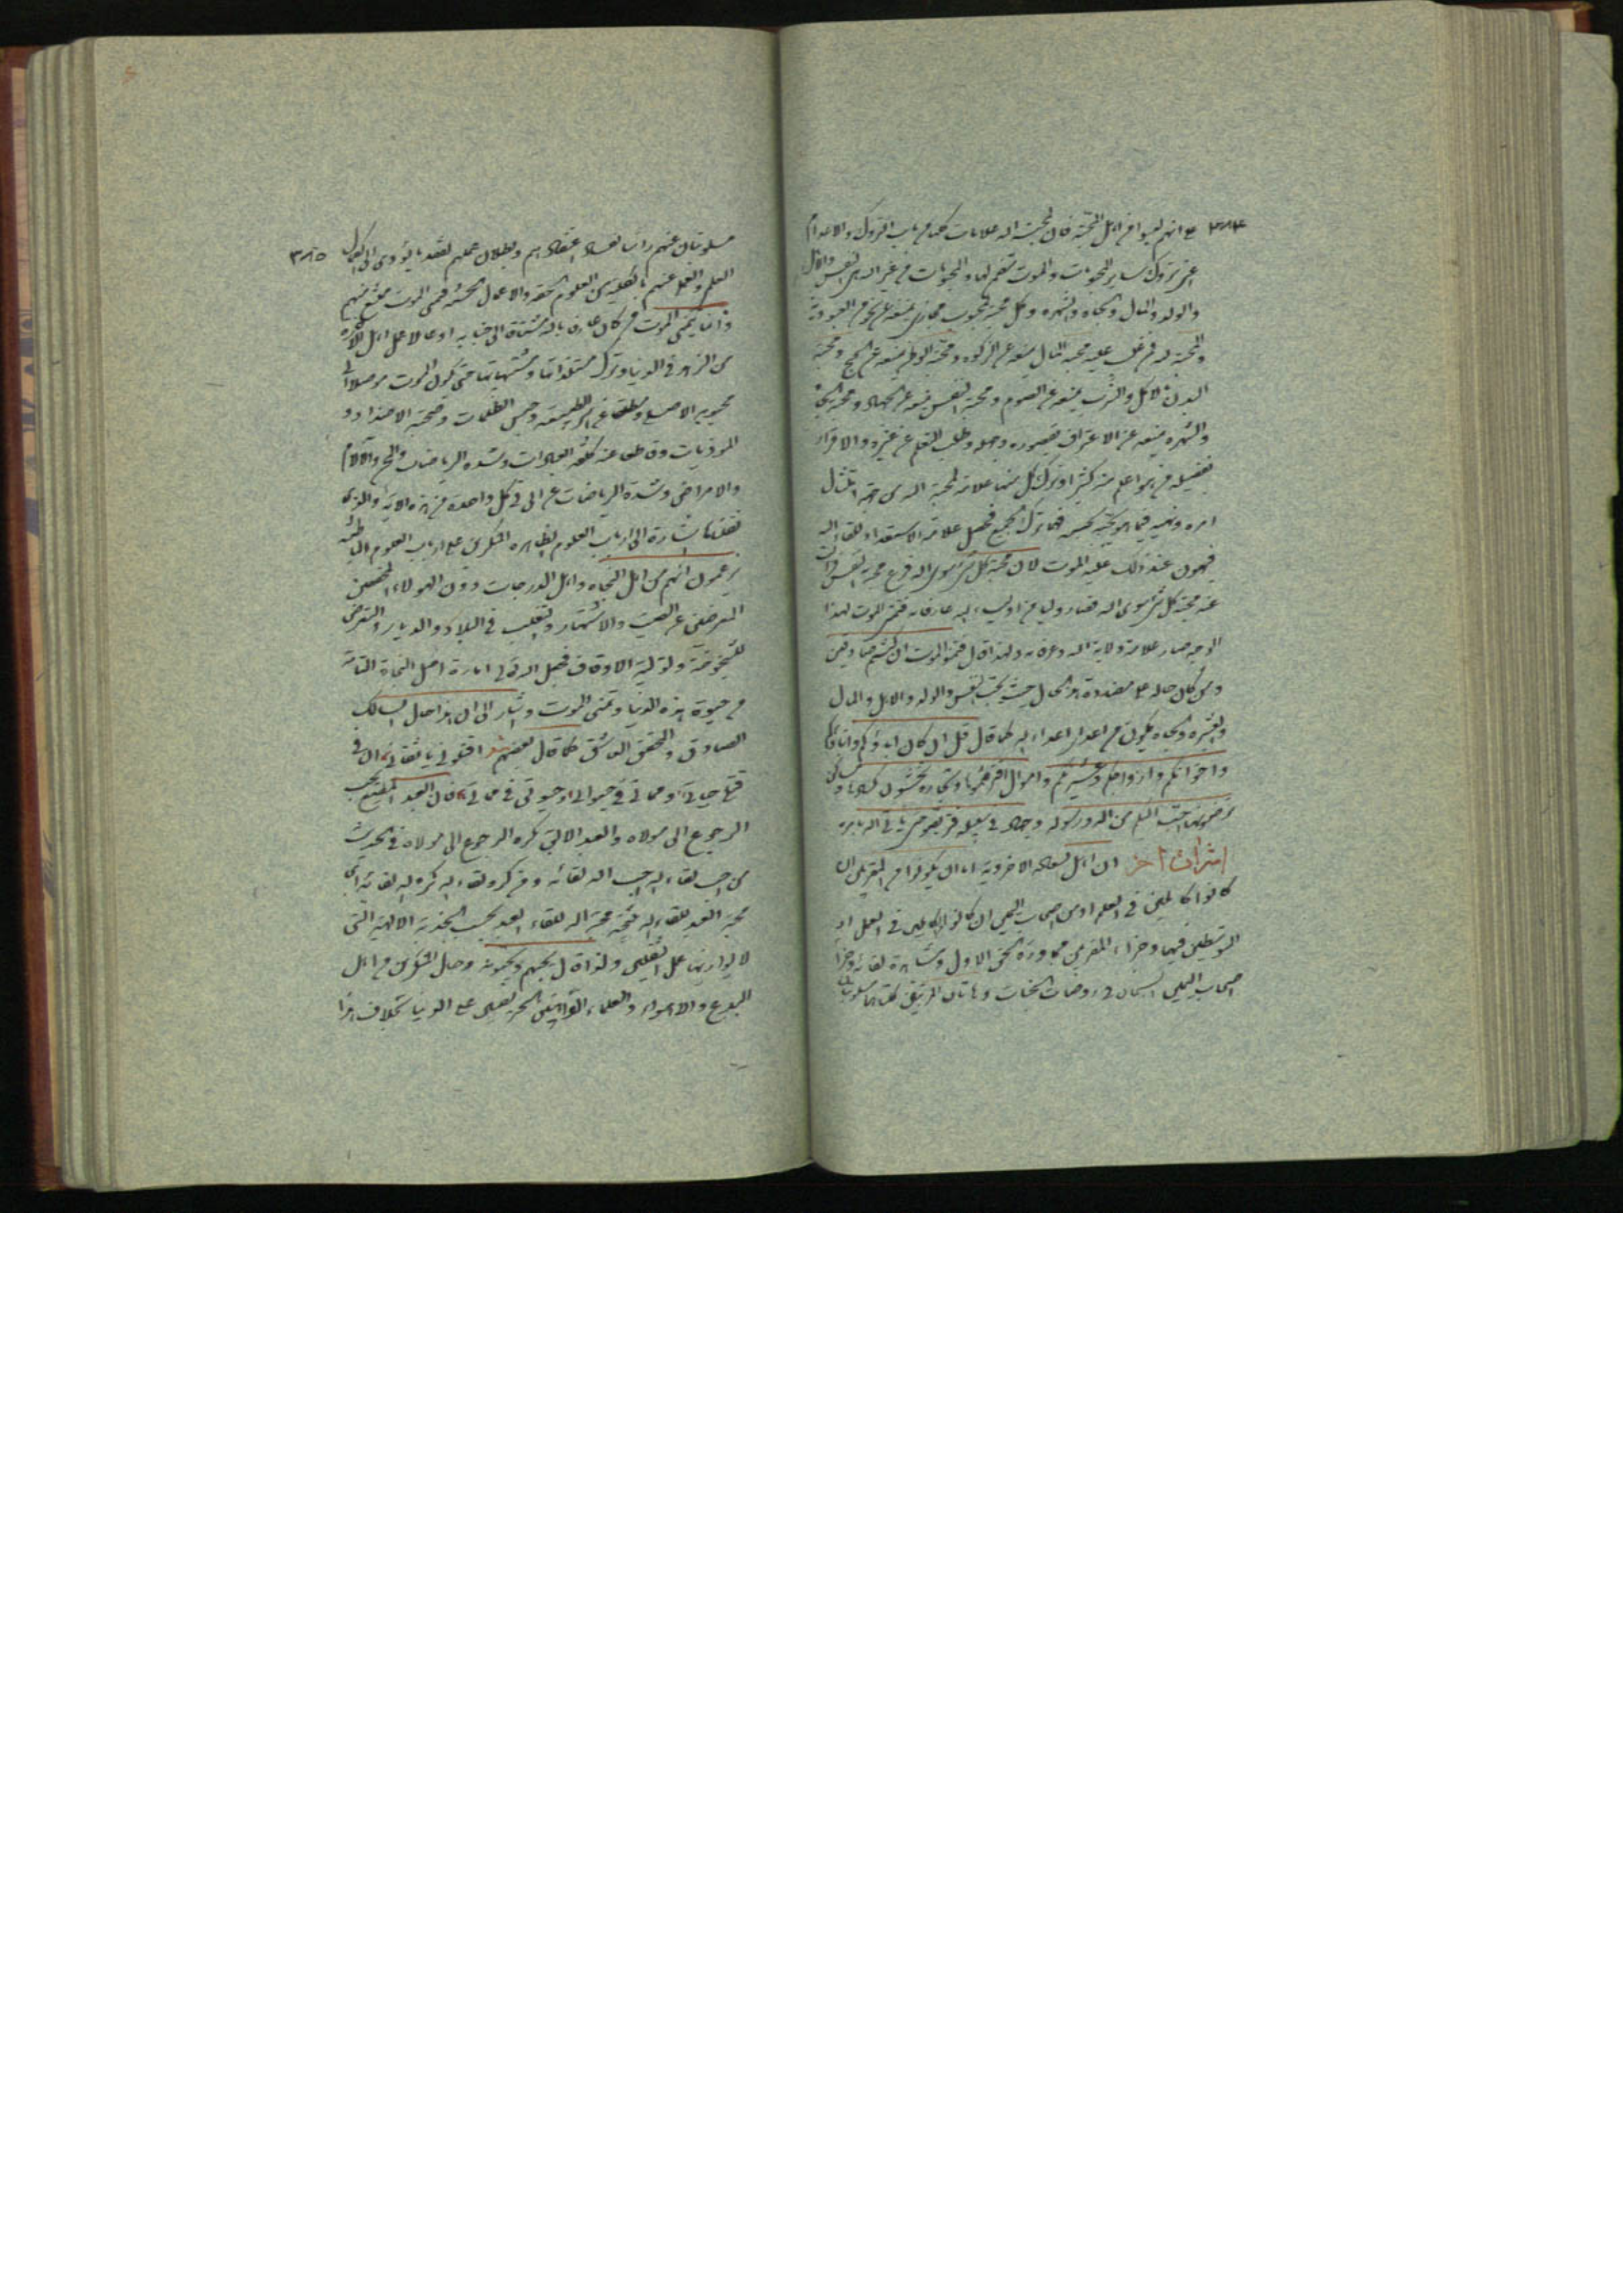 ٣٨٤ مع انهم ليسوا من اهل المحبة فان لمحبة الله علامات كلها من باب التروك والاعدام
اعنى تروك ساير المحبوبات والموت تقم لها والمحبوبات من غير الله هى النفس والاهل
والولد والمال والجاه والشهره وكل محبة محبوب مجازى يمنعه عن نحو من العبودية
والمحبة لله فمن غلب عليه محبة المال يمنعه عن الزكوه ومحبة الوطن يمنعه عن الحج ومحبة
البدن الاكل والشرب يمنعه عن الصوم ومحبة النفس يمنعه عن الجهاد ومحبة الجاه
والشهره يمنعه عن الاعتراف بقصوره وجهله وطلب التعلم عن غيره والاقرار
بفضيلة من هو اعلم منه كثيرا وترك كل منها علامة لمحبة الله من جهة امتثال
امره ونهيه فيما هو يحبه فمن ترك الجميع فحصل علامة الاستعداد للقاء الله
فيهون عند ذلك عليه الموت لان محبة كل شئ سوى الله فرع محبة النفس
عنه محبة كل شئ سوى الله فصار وليا من اولياء الله عارفا به فتمنى الموت لهذا
الوجه صار علامة ولاية الله وعرفانه ولهذا قال فتمنوا الموت ان كنتم صادقين
ومن كان حاله على مضادة هذا الحال حيث يحب النفس والولد والاهل والمال
والعشيره والجاه يكون من اعداء الله كما قال قل ان كان اباؤكم وابناؤكم
واخوانكم وازواجكم وعشيرتكم واموال اقترفتموها وتجارة تخشون كسادها ومساكن
ترضونها احب اليكم من الله ورسوله وجهاد فى سبيله فتربصوا حتى ياتى الله بامره
اشراق آخر ان اهل السعاده الاخروية اما ان يكونوا من المقربين ان
كانوا كاملين فى العلم او من اصحاب اليمين ان كانوا كاملين فى العمل او
المتوسطين فيهما وجزاء المقربين مجاورة الحق الاول ومشاهدة لقائه وجزاء
اصحاب اليمين السلام فى روضات الجنات وهاتان المرتبتان كلتاهما مسلوبتان
مسلوبتان عنهم راسا لفساد اعتقادهم وبطلان عملهم لفقد ما يؤدى الى كمال ٣٨٥
العلم والعمل عنهم بالكلية من العلوم الحقه والاعمال الحسنه فتمنى الموت ممتنع منهم
وانما يتمنى الموت من كان عارفا بالله مشتاقا الى جنابه او عاملا عمل اهل الآخره
من الزهد فى الدنيا وترك مستلذاتها ومشتهياتها حتى يكون الموت موصلا الى
محبوبه الاصلى ومطلقا عن اسر الطبيعة وحبس الظلمات وصحبة الاضداد و
الموذيات وقد طلق عنه كلفة العبادات وشده الرياضات والمحن والآلام
والامراض وشدة الرياضات ثم الى فى كل واحدة من هذه الآية والتى
نقلنا اشارة الى ارباب العلوم الظاهره المنكرين على ارباب العلوم الباطنه
يزعمون انهم من اهل النجاه واهل الدرجات دون الهؤلاء المخلصين
المعرضين عن الصيت والاشتهار والتقلب فى البلاد والديار والتعرض
للشيخوخة وتولية الاوقاف فجعل الله تعالى امارة اصل النجاة التامة
من حيوة هذه الدنيا وتمنى الموت واشار الى ان هذا حال السالك
الصادق والمحقق العاشق كما قال بعضهم شعر اقتلونى يا ثقاتى ان فى
قتلى حياتى ومماتى فى حيوتى وحيوتى فى مماتى فان العبد المطيع يحب
الرجوع الى مولاه والعبد الابق كره الرجوع الى مولاه فى الحديث
من احب لقاء الله احب الله لقائه ومن كره لقاء الله كره الله لقائه اى
محبة العبد للقاء الله نتيجة محبة الله للقاء العبد بحسب الجذبة الالهية التى
لا يوازيها عمل الثقلين ولذا قال يحبهم ويحبونه وحال المنكرين من اهل
البدع والاهواء والعلماء الحريصين على الدنيا بخلاف هذا